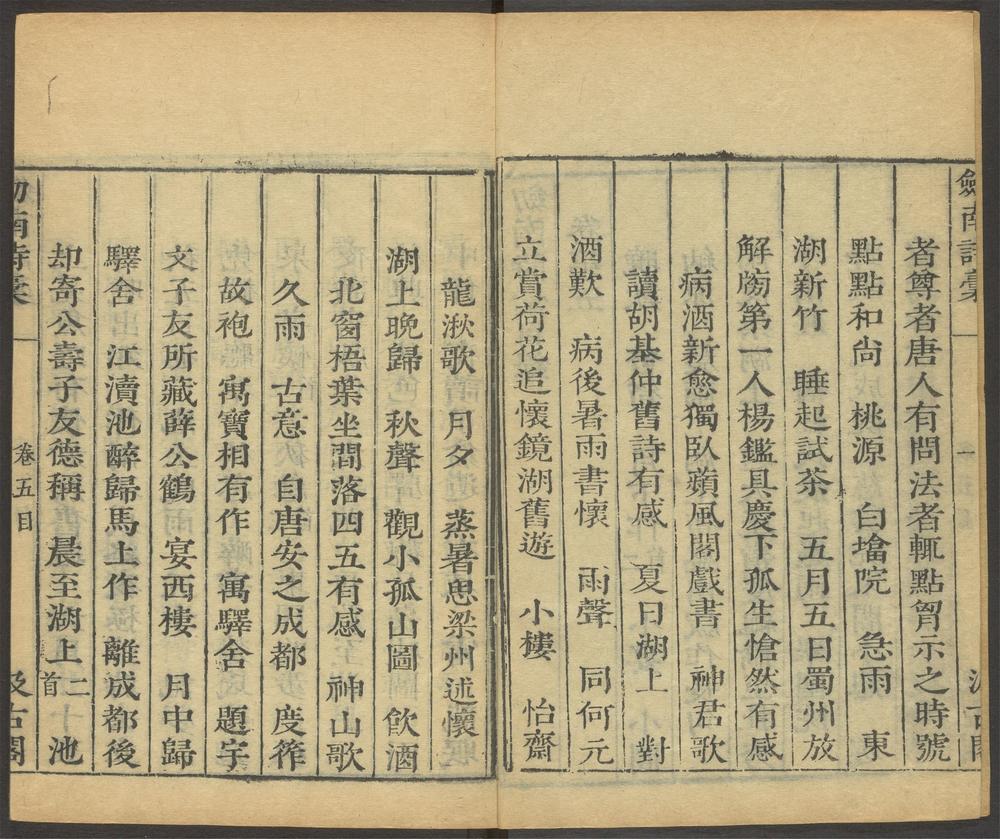 劍南詩稾
一
汲古閣
者尊者唐人有問法者輒點胷示之時號
點點和尙　桃源　白㙮院　急雨　東
湖新竹　睡起試茶　五月五日蜀州放
解牓第一人楊鑑具慶下孤生愴然有感
病酒新愈獨臥蘋風閣戲書　神君歌
讀胡基仲舊詩有感　夏日湖上　對
酒歎　病後暑雨書懷　雨聲　同何元
立賞荷花追懷鏡湖舊遊　小樓　怡齋
龍湫歌　月夕　蒸暑思梁州述懷
湖上晚歸　秋聲　觀小孤山圖　飮酒
北窗梧葉坐間落四五有感　神山歌
久雨　古意　自唐安之成都　度筰
故袍　寓寶相有作　寓驛舍　題字
文子友所藏薛公鶴　宴西樓　月中歸
驛舍　江瀆池醉歸馬上作　離成都後
却寄公壽子友德稱　晨至湖上二首　池
劍南詩稾
卷五目
十
汲古閣